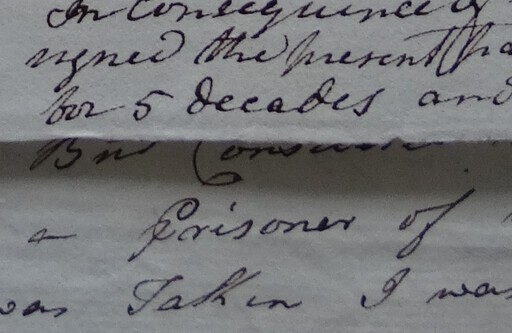 In Consequence of
signed the present
for 5 decades and
a Prisoner of
was Taken I was